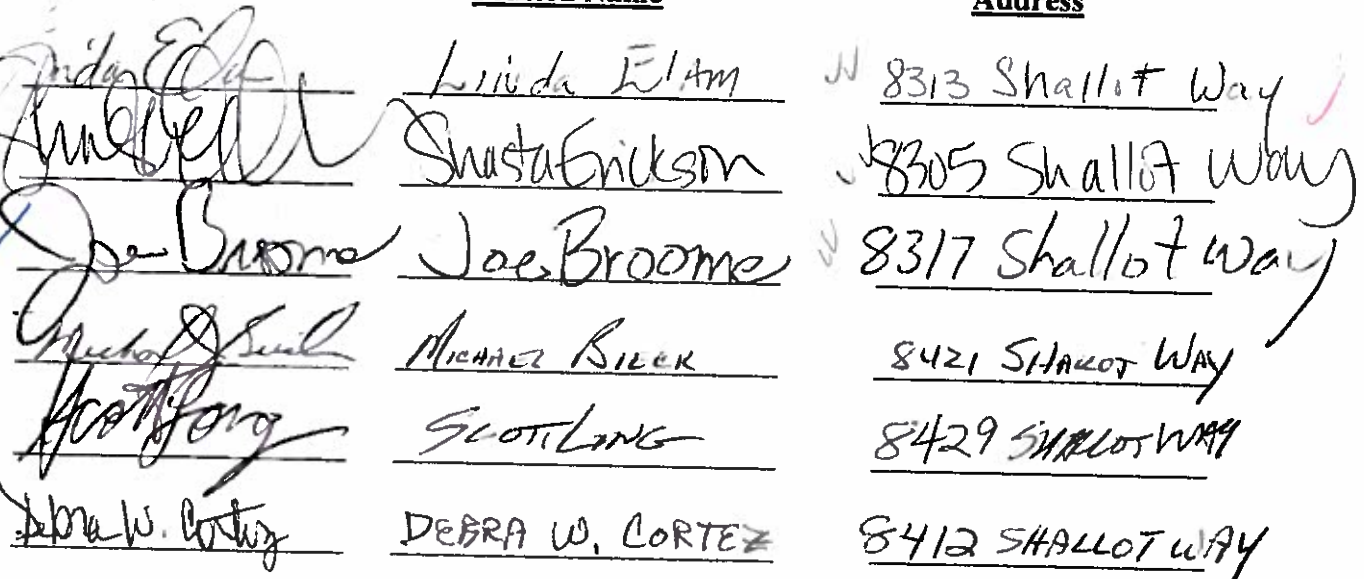 Name Address
Linda Elam 8313 Shallot Way
Shasta Erickson 8305 Shallot Way
Joe Broome Joe Broome 8317 Shallot Way
Michael 8421 Shallot Way
Scott Long Scott Long 8429 Shallot Way
Debra W. Cortez DEBRA W. CORTEZ 8412 SHALLOT WAY